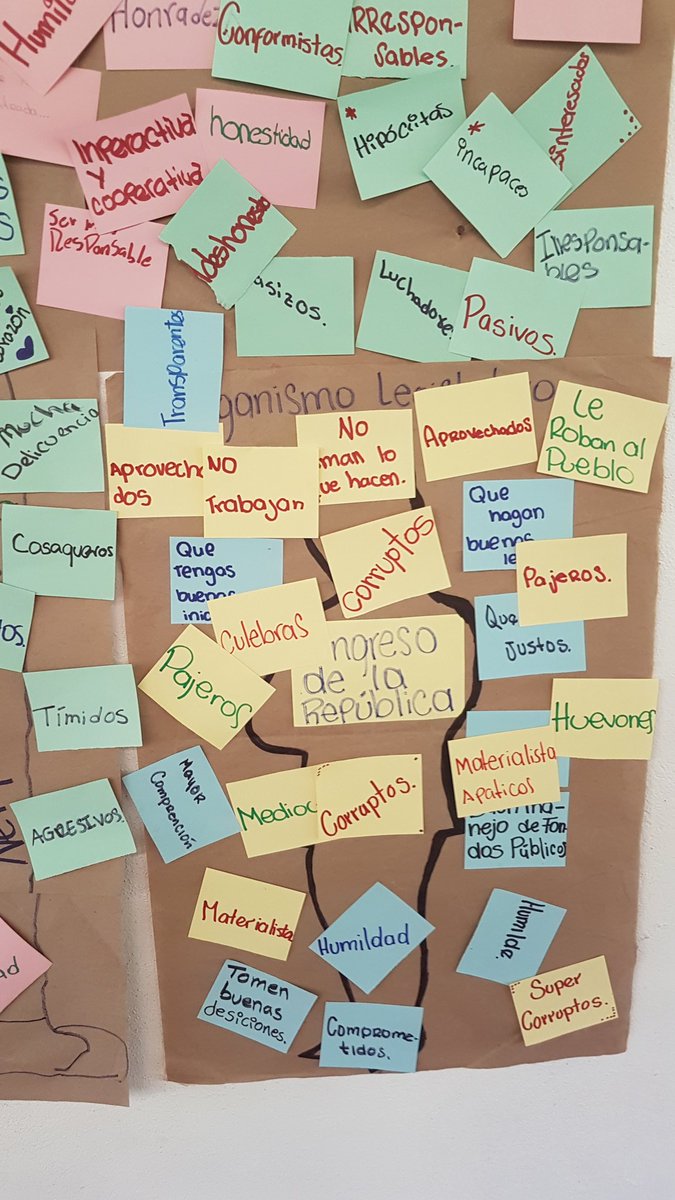 Humil
Honradez
Conformistas.
RRespon-
sables.
Inperactiva
y
cooperativa
honestidad
* Hipócritas
* incapaces
sinteresados
Ser
ResPonsable
deshonest
asizos.
Luchadore
Pasivos.
IrresPonsa-
bles
razón
Transparentes
ganismo Leg
Mucha
Delicuencia
Aprovech
dos
NO
Trabajan
NO
man lo
ue hacen.
Aprovechados
Le
Roban al
Pueblo
Casaqueros
Que
Tengas
buena
inic
Corruptos
Que
hagan
buenas
le
Pajeros.
Culebras
Pajeros
ngreso
de la
República
Que
Justos.
Tímidos
Huevones
AGRESIVOS.
Mayor
Comprención
Medioc
Corruptos.
Materialista
Apaticos
nejo de Fon-
dos Públicos
Materialista
Humildad
Humilde.
Tomen
buenas
desiciones.
Comprome-
tidos.
Super
Corruptos.
ad